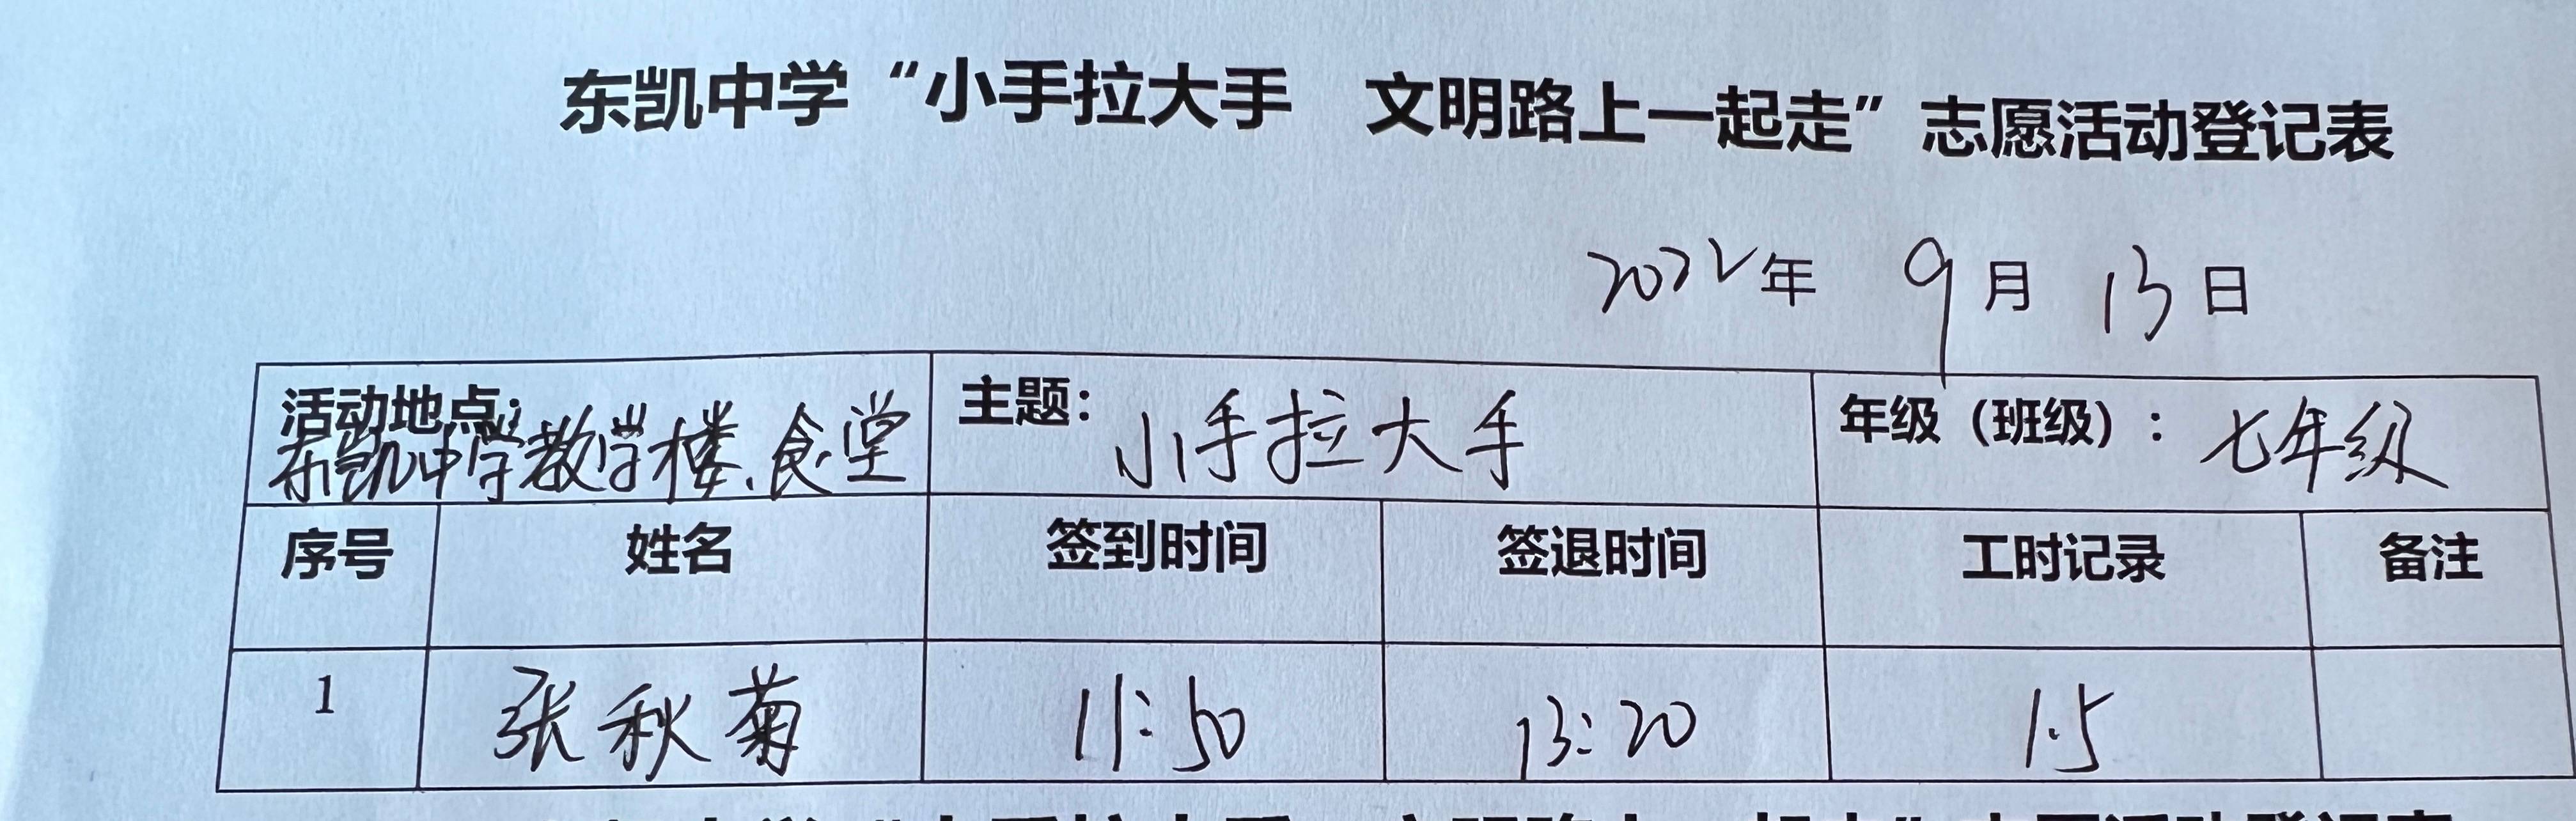 东凯中学“小手拉大手　文明路上一起走”志愿活动登记表
2022年 9月 13日
活动地点：东凯中学教学楼、食堂
主题：小手拉大手
年级（班级）：七年级
序号 姓名 签到时间 签退时间 工时记录 备注
1 张秋菊 11:50 13:20 1.5